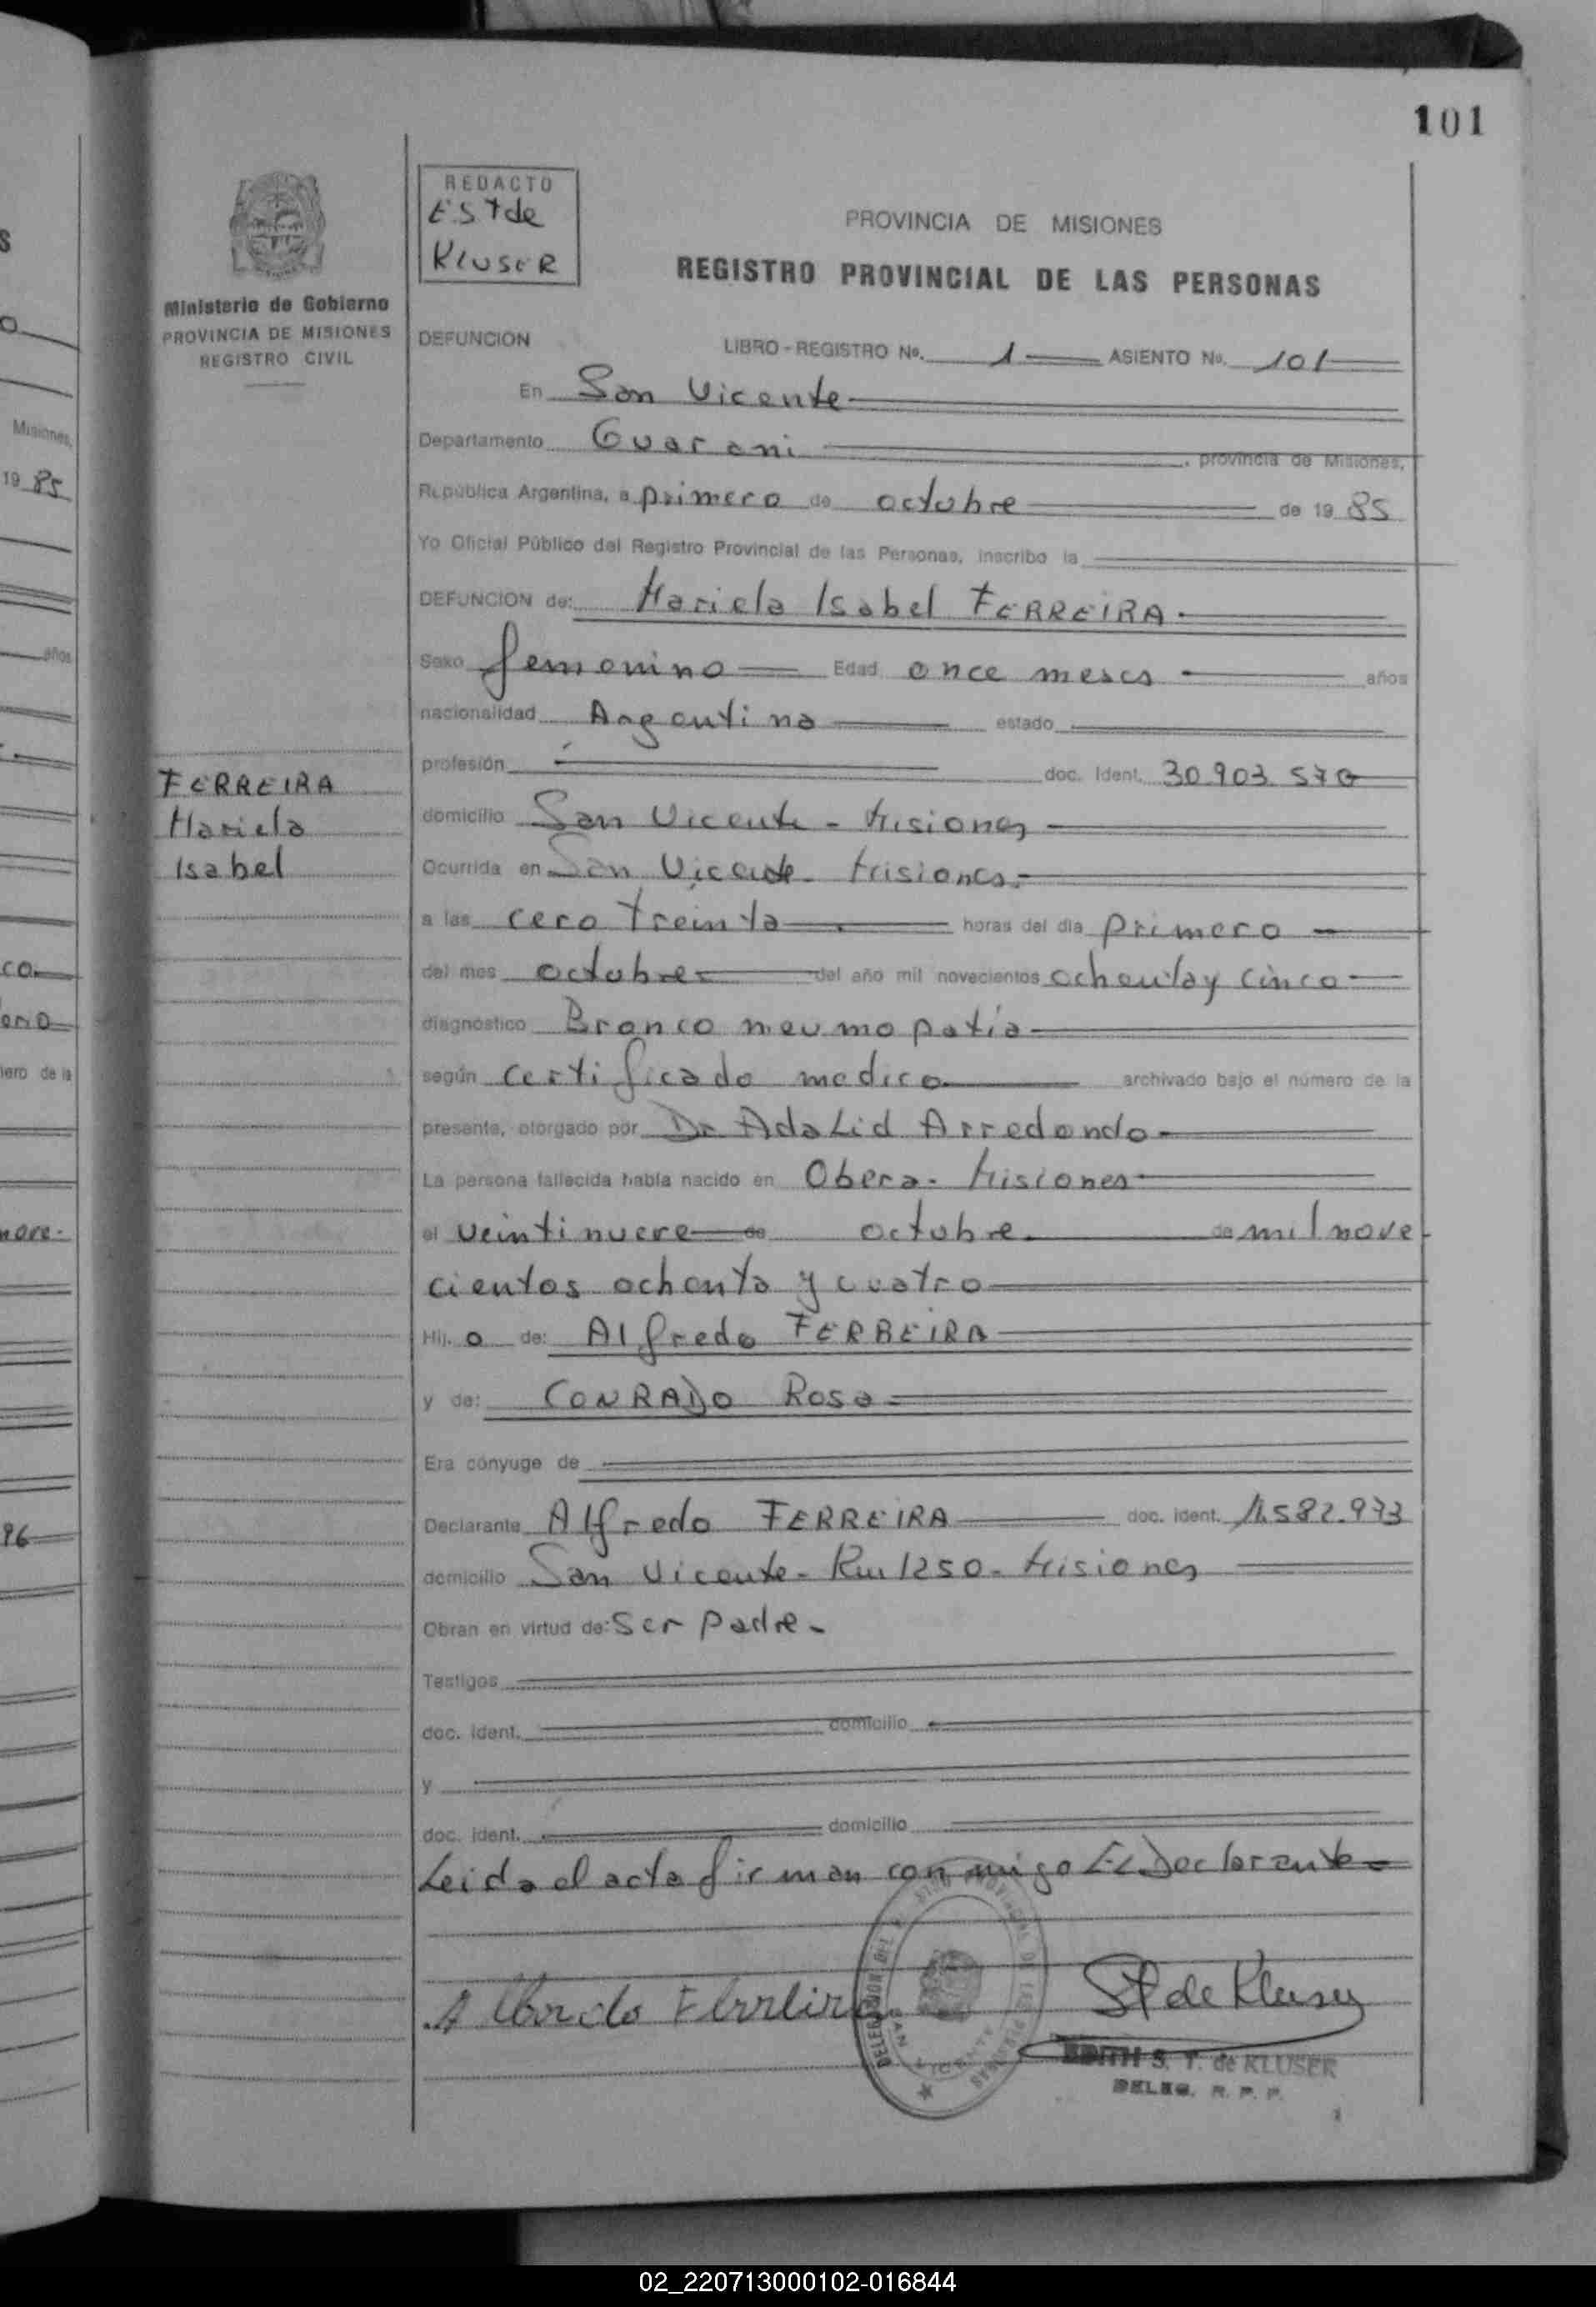 101
REDACTO
E S T de
KLUSER
PROVINCIA DE MISIONES
REGISTRO PROVINCIAL DE LAS PERSONAS
Ministerio de Gobierno
PROVINCIA DE MISIONES
REGISTRO CIVIL
DEFUNCION LIBRO-REGISTRO No. 1 ASIENTO No. 101
En San Vicente
Departamento Guarani, provincia de Misiones,
República Argentina, a primero de octubre de 19 85
Yo Oficial Público del Registro Provincial de las Personas, inscribo la
DEFUNCION de: Mariela Isabel FERREIRA
Sexo femenino Edad once meses años
nacionalidad Argentina estado
profesión doc. Ident. 30.903.570
FERREIRA
Mariela
Isabel
domicilio San Vicente - Misiones
Ocurrida en San Vicente Misiones
a las cero treinta horas del día primero
del mes octubre del año mil novecientos ochenta y cinco
diagnóstico Bronco neumopatia
según certificado medico archivado bajo el número de la
presente, otorgado por Dr Adalid Arredondo
La persona fallecida había nacido en Obera - Misiones
el veintinueve de octubre de mil nove
cientos ochenta y cuatro
Hij. o de: Alfredo FERREIRA
y de: CONRADO Rosa
Era cónyuge de
Declarante Alfredo FERREIRA doc. ident.
domicilio San Vicente - Km 1250 - Misiones
Obran en virtud de: Ser padre -
Testigos
doc. ident. domicilio
y
doc. ident. domicilio
Leida el acta firman conmigo El Declarante
St de Kluser
EDITH S. T. de KLUSER
DELEG. R. P. P.
Misiones,
19 85
años
96
02_220713000102-016844